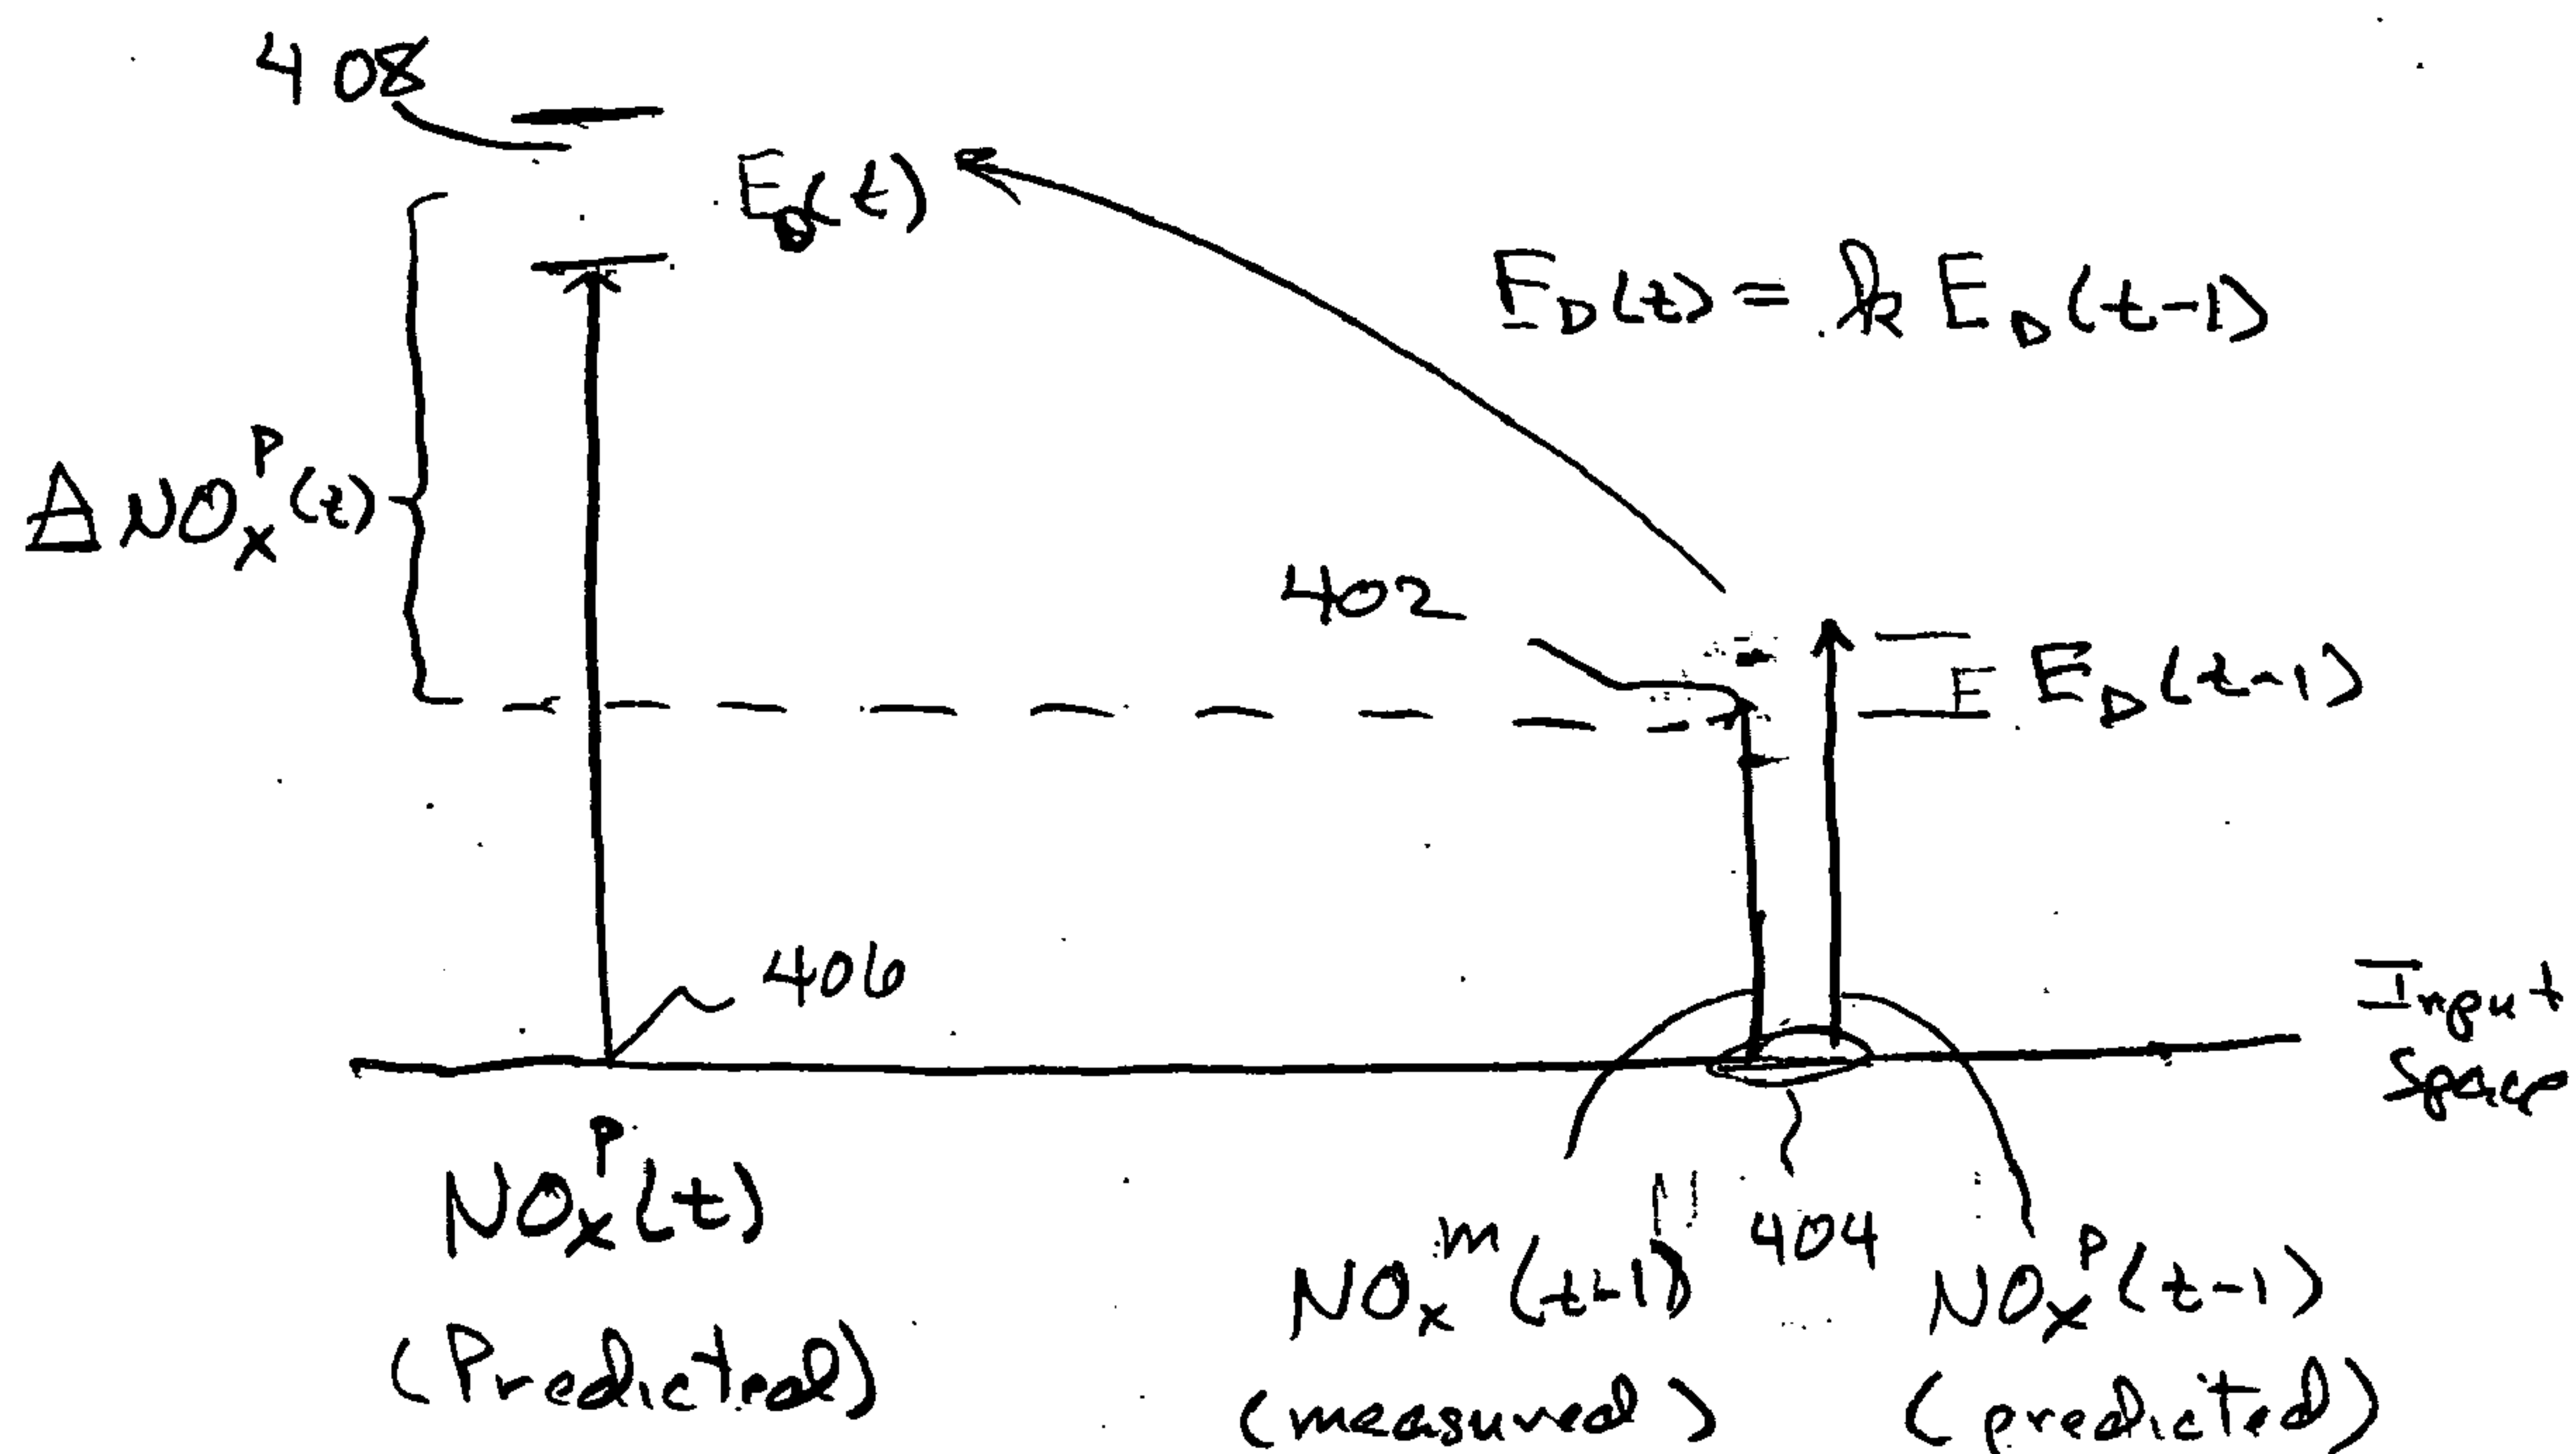 408
E_D(t)
E_D(t) = k E_D(t-1)
Δ NO_x^P(t)
402
E E_D(t-1)
406
Input
Space
NO_x^P(t)
(Predicted)
404
NO_x^m(t-1)
(measured)
NO_x^P(t-1)
(predicted)